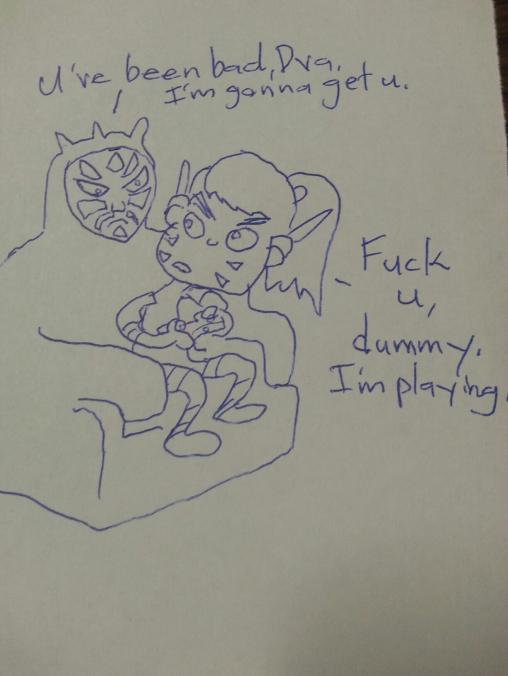 U've been bad, Dva.
I'm gonna get u.
Fuck
u,
dummy.
I'm playing.